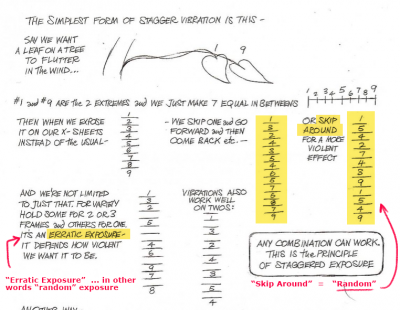 THE SIMPLEST FORM OF STAGGER VIBRATION IS THIS –
SAY WE WANT
A LEAF ON A TREE
TO FLUTTER
IN THE WIND...
1 9
#1 AND #9 ARE THE 2 EXTREMES AND WE JUST MAKE 7 EQUAL IN BETWEENS
1 2 3 4 5 6 7 8 9
THEN WHEN WE EXPOSE
IT ON OUR X-SHEETS
INSTEAD OF THE USUAL –
1
2
3
4
5
6
7
8
9
– WE SKIP ONE AND GO
FORWARD AND THEN
COME BACK etc –
1
3
2
4
3
5
4
6
5
7
6
8
7
9
OR SKIP
AROUND
FOR A MORE
VIOLENT
EFFECT
1
5
AND WE'RE NOT LIMITED
TO JUST THAT. FOR VARIETY
HOLD SOME FOR 2 OR 3
FRAMES AND OTHERS FOR ONE.
ITS AN ERRATIC EXPOSURE –
IT DEPENDS HOW VIOLENT
WE WANT IT TO BE.
1
3
2
5
4
6
9
7
8
VIBRATIONS ALSO
WORK WELL
ON TWOS:
1
3
2
4
3
5
ANY COMBINATION CAN WORK.
THIS IS THE PRINCIPLE
OF STAGGERED EXPOSURE
"Erratic Exposure" ... in other
words "random" exposure
"Skip Around" = "Random"